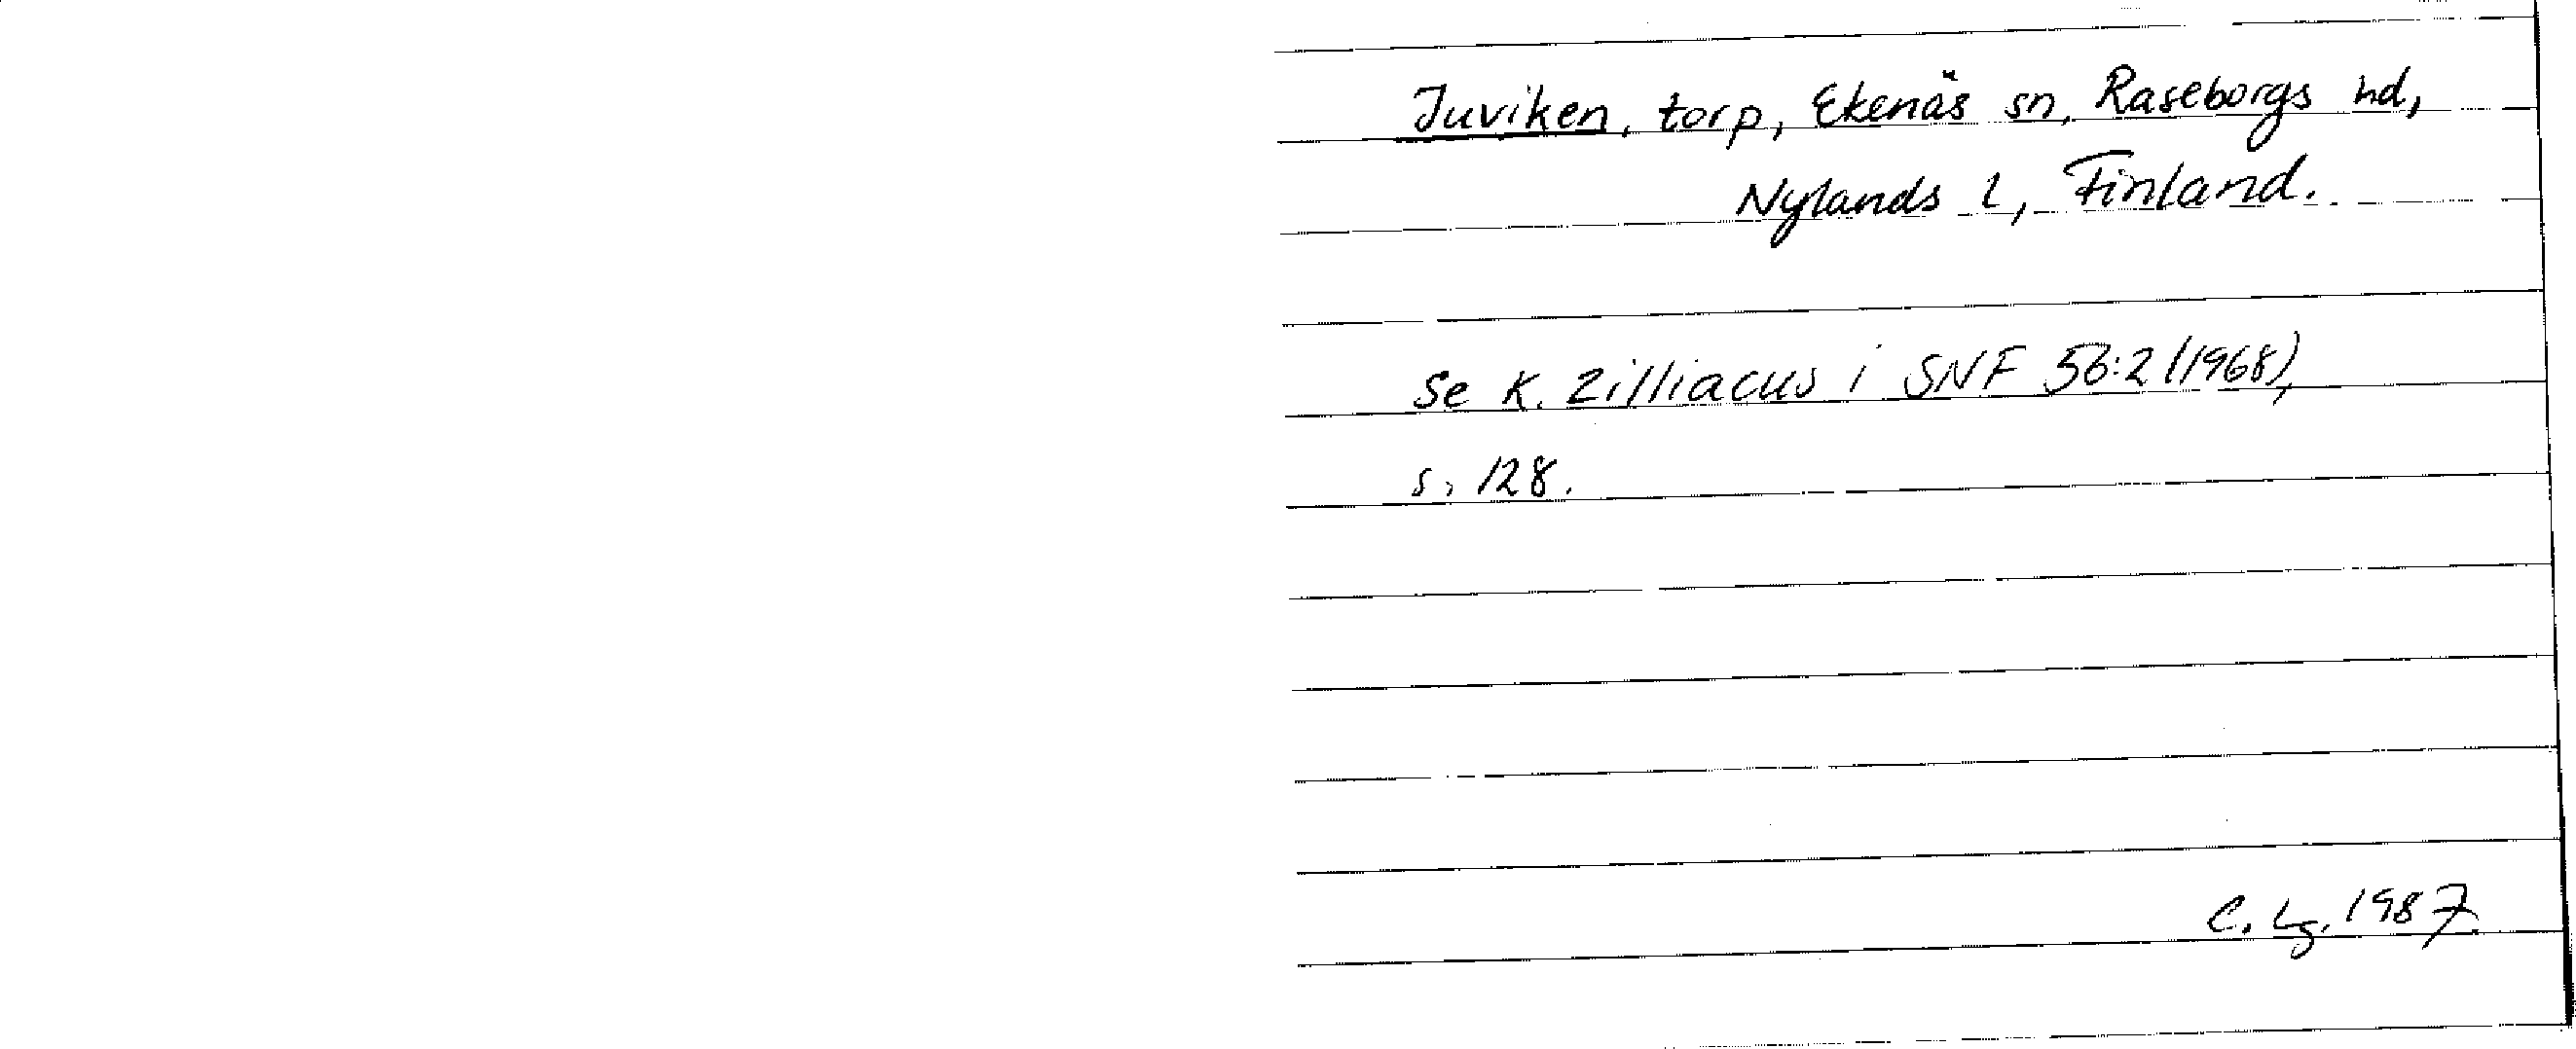 Juviken, torp, Ekenäs sn, Raseborgs hd,
Nylands l, Finland.
Se K. Zilliacus i SNF 56:2 (1968),
s. 128.
C. Lg. 1987.